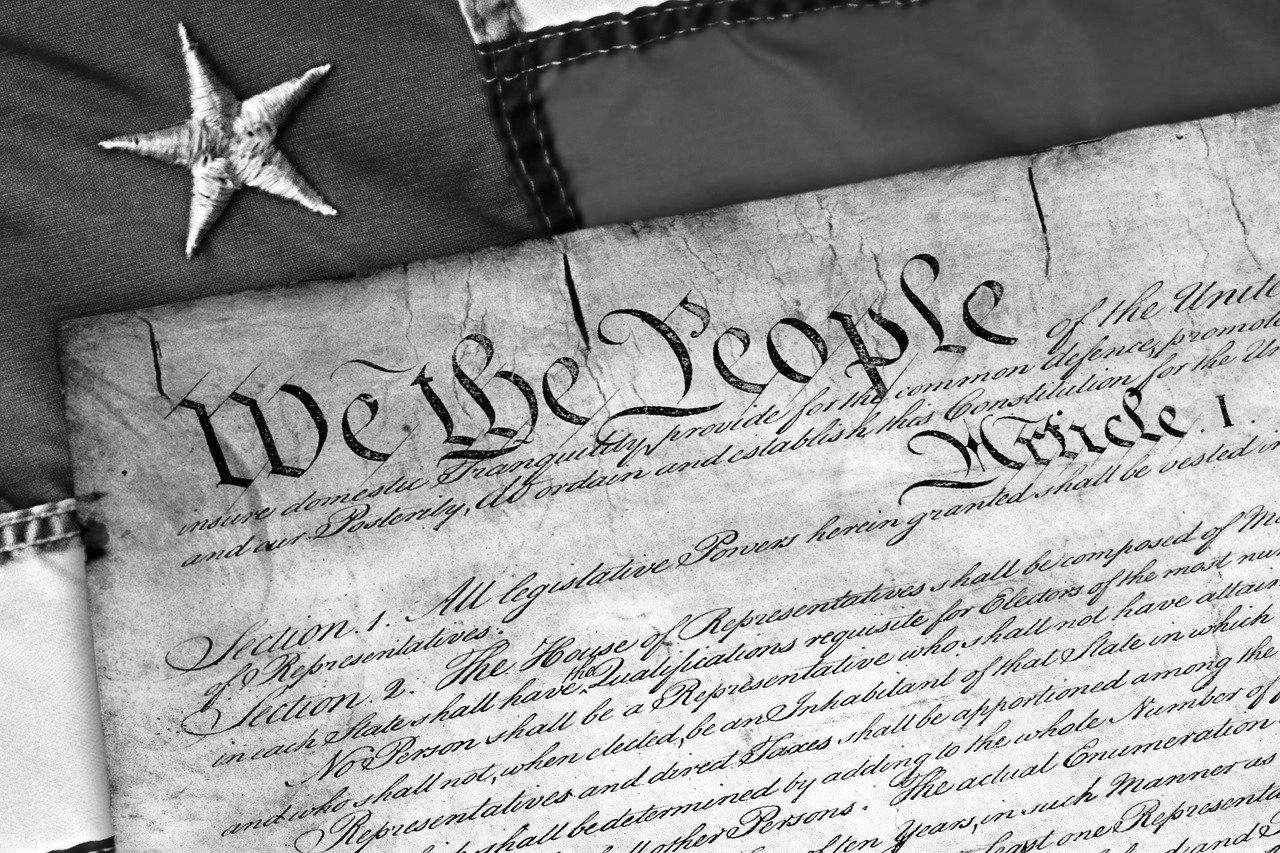 We the People of the Unite
insure domestic Tranquility, provide for the common defence, promote
and our Posterity, do ordain and establish this Constitution for the Un
Article. I.
Section. 1. All legislative Powers herein granted shall be vested in
of Representatives.
Section. 2. The House of Representatives shall be composed of M
in each State shall have the Qualifications requisite for Electors of the most num
No Person shall be a Representative who shall not have attain
and who shall not, when elected, be an Inhabitant of that State in which
Representatives and direct Taxes shall be apportioned among the
shall be determined by adding to the whole Number of
other Persons. The actual Enumeration
of ten Years, in such Manner as
least one Representa